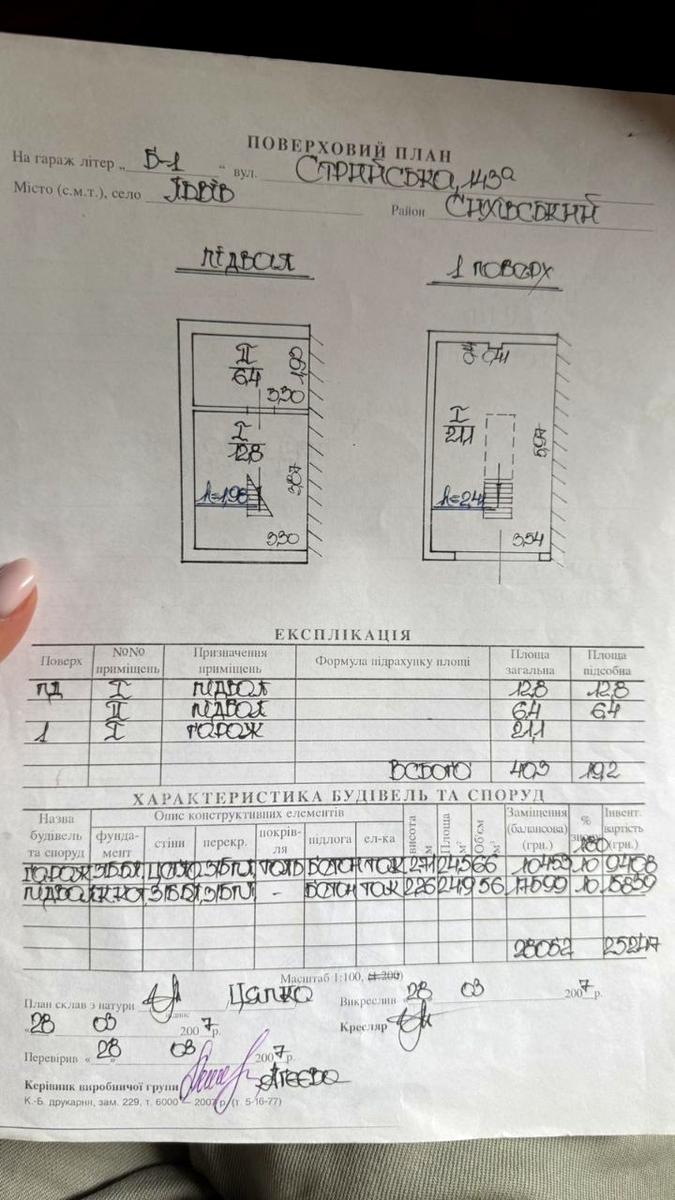 ПОВЕРХОВИЙ ПЛАН
На гараж літер „ Б-1 “ вул. Стрийська, 143а
Місто (с.м.т.), село Львів Район Сихівський
підвал 1 поверх
II
6,4
1,93
3,30
I
12,8
3,87
h=1,98
3,30
0,41
I
21,1
5,97
h=2,41
3,54
ЕКСПЛІКАЦІЯ
Поверх №№ приміщень Призначення приміщень Формула підрахунку площі Площа загальна Площа підсобна
пд I підвал 12,8 12,8
II підвал 6,4 6,4
1 I гараж 21,1
Всього 40,3 19,2
ХАРАКТЕРИСТИКА БУДІВЕЛЬ ТА СПОРУД
Назва будівель та споруд Опис конструктивних елементів висота м Площа м² Об'єм м³ Заміщення (балансова) (грн.) % Інвент. вартість (грн.)
фунда-мент стіни перекр. покрів-ля підлога ел-ка
гараж з/бл цегла з/б пл толь бетон так 2,71 24,5 66 10453 10 9408
підвал з/бл з/б пл - бетон так 2,26 24,9 56 17599 10 15839
28052 25247
Масштаб 1:100,
План склав з натури Цапко Викреслив « 28 03 2007 р.
« 28 03 2007 р. Кресляр
Перевірив « 28 » 03 2007 р.
Керівник виробничої групи Агеєва
К.-Б. друкарня, зам. 229, т. 6000 — 2007 р. (т. 5-16-77)